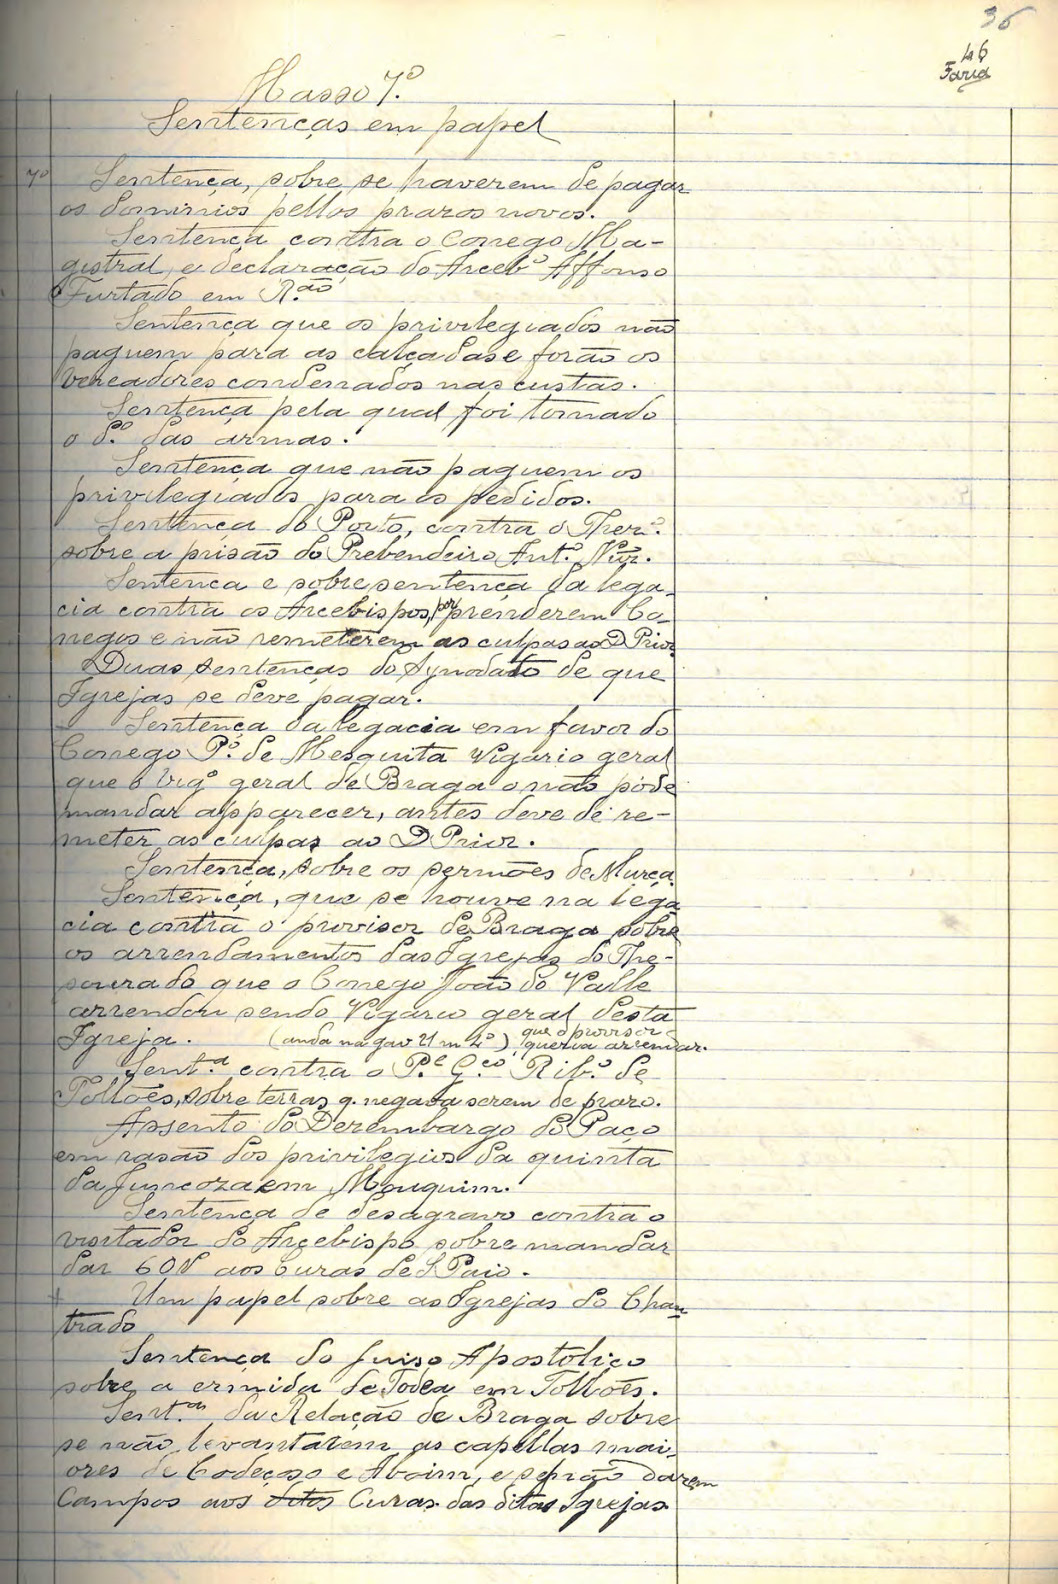 36
46
Faria
Masso 7.º
Sentenças em papel
7º Sentença, sobre se haverem de pagar
os dominios pellos prazos novos.
Sentença contra o Conego Ma-
gistral, e declaração do Arceb.º Affonso
Furtado em R.ão
Sentença que os privilegiados não
paguem para as calçadas e forão os
Vereadores condemnados nas custas.
Sentença pela qual foi tomado
o d.º das armas.
Sentença que não paguem os
privilegiados para os pedidos.
Sentença do Porto, contra o Thez.º
sobre a prisão do Prebendeiro Ant.º
Sentença e sobresentença da lega-
cia contra os Arcebispos, por prenderem Co-
negos e não remeterem as culpas ao D Prior
Duas sentenças do Synodato de que
Igrejas se deve pagar.
Sentença da legacia em favor do
Conego P.º de Mesquita Vigario geral
que o Vigº geral de Braga o não póde
mandar apparecer, antes deve de re-
meter as culpas ao D Prior.
Sentença, sobre os sermões de Murça
Sentença, que se houve na lega
cia contra o provisor de Braga sobre
os arrendamentos das Igrejas do The-
sourado que o Conego João do Valle
arrendou sendo Vigario geral desta
Igreja. (anda na gav 21 m 2º) que o provisor
queria arrendar.
Sent.ª contra o P.e G.co Rib.º de
Tolloēs, sobre terras q. negava serem de prazo.
Assento do Dezembargo do Paço
em rasão dos privilegios da quinta
da Juncoza em Mouquim.
Sentença de desagravo contra o
visitador do Arcebispo sobre mandar
dar 60$ aos Curas de S. Paio.
+ Um papel sobre as Igrejas do Chan
trado
Sentença do Juiso Apostolico
sobre a ermida de Todea em Tolloēs.
Sent.as da Relação de Braga sobre
se não levantarem as capellas mai-
ores de Codeçoso e Aboim, e se não darem
Campos aos ditos Curas das ditas Igrejas